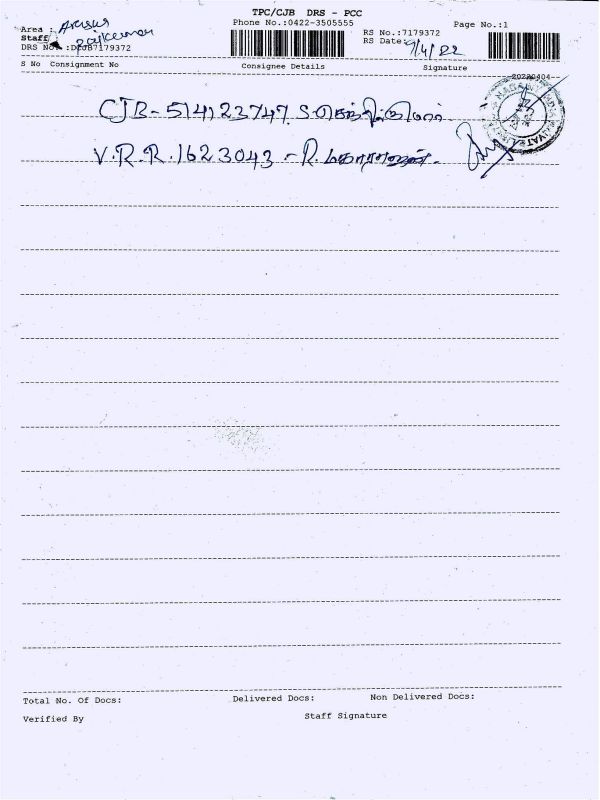 TPC/CJB DRS - PCC
Phone No.:0422-3505555
Page No.:1
Area : Arasur
Staff : Rajkumar
DRS No. :DCJB7179372
RS No.:7179372
RS Date: 9/4/22
S No Consignment No Consignee Details Signature
20220404
CJB - 514123747 S. செந்தில்குமார்.
V.R.R. 1623043 - R. மகாராஜன்.
Total No. Of Docs: Delivered Docs: Non Delivered Docs:
Verified By Staff Signature